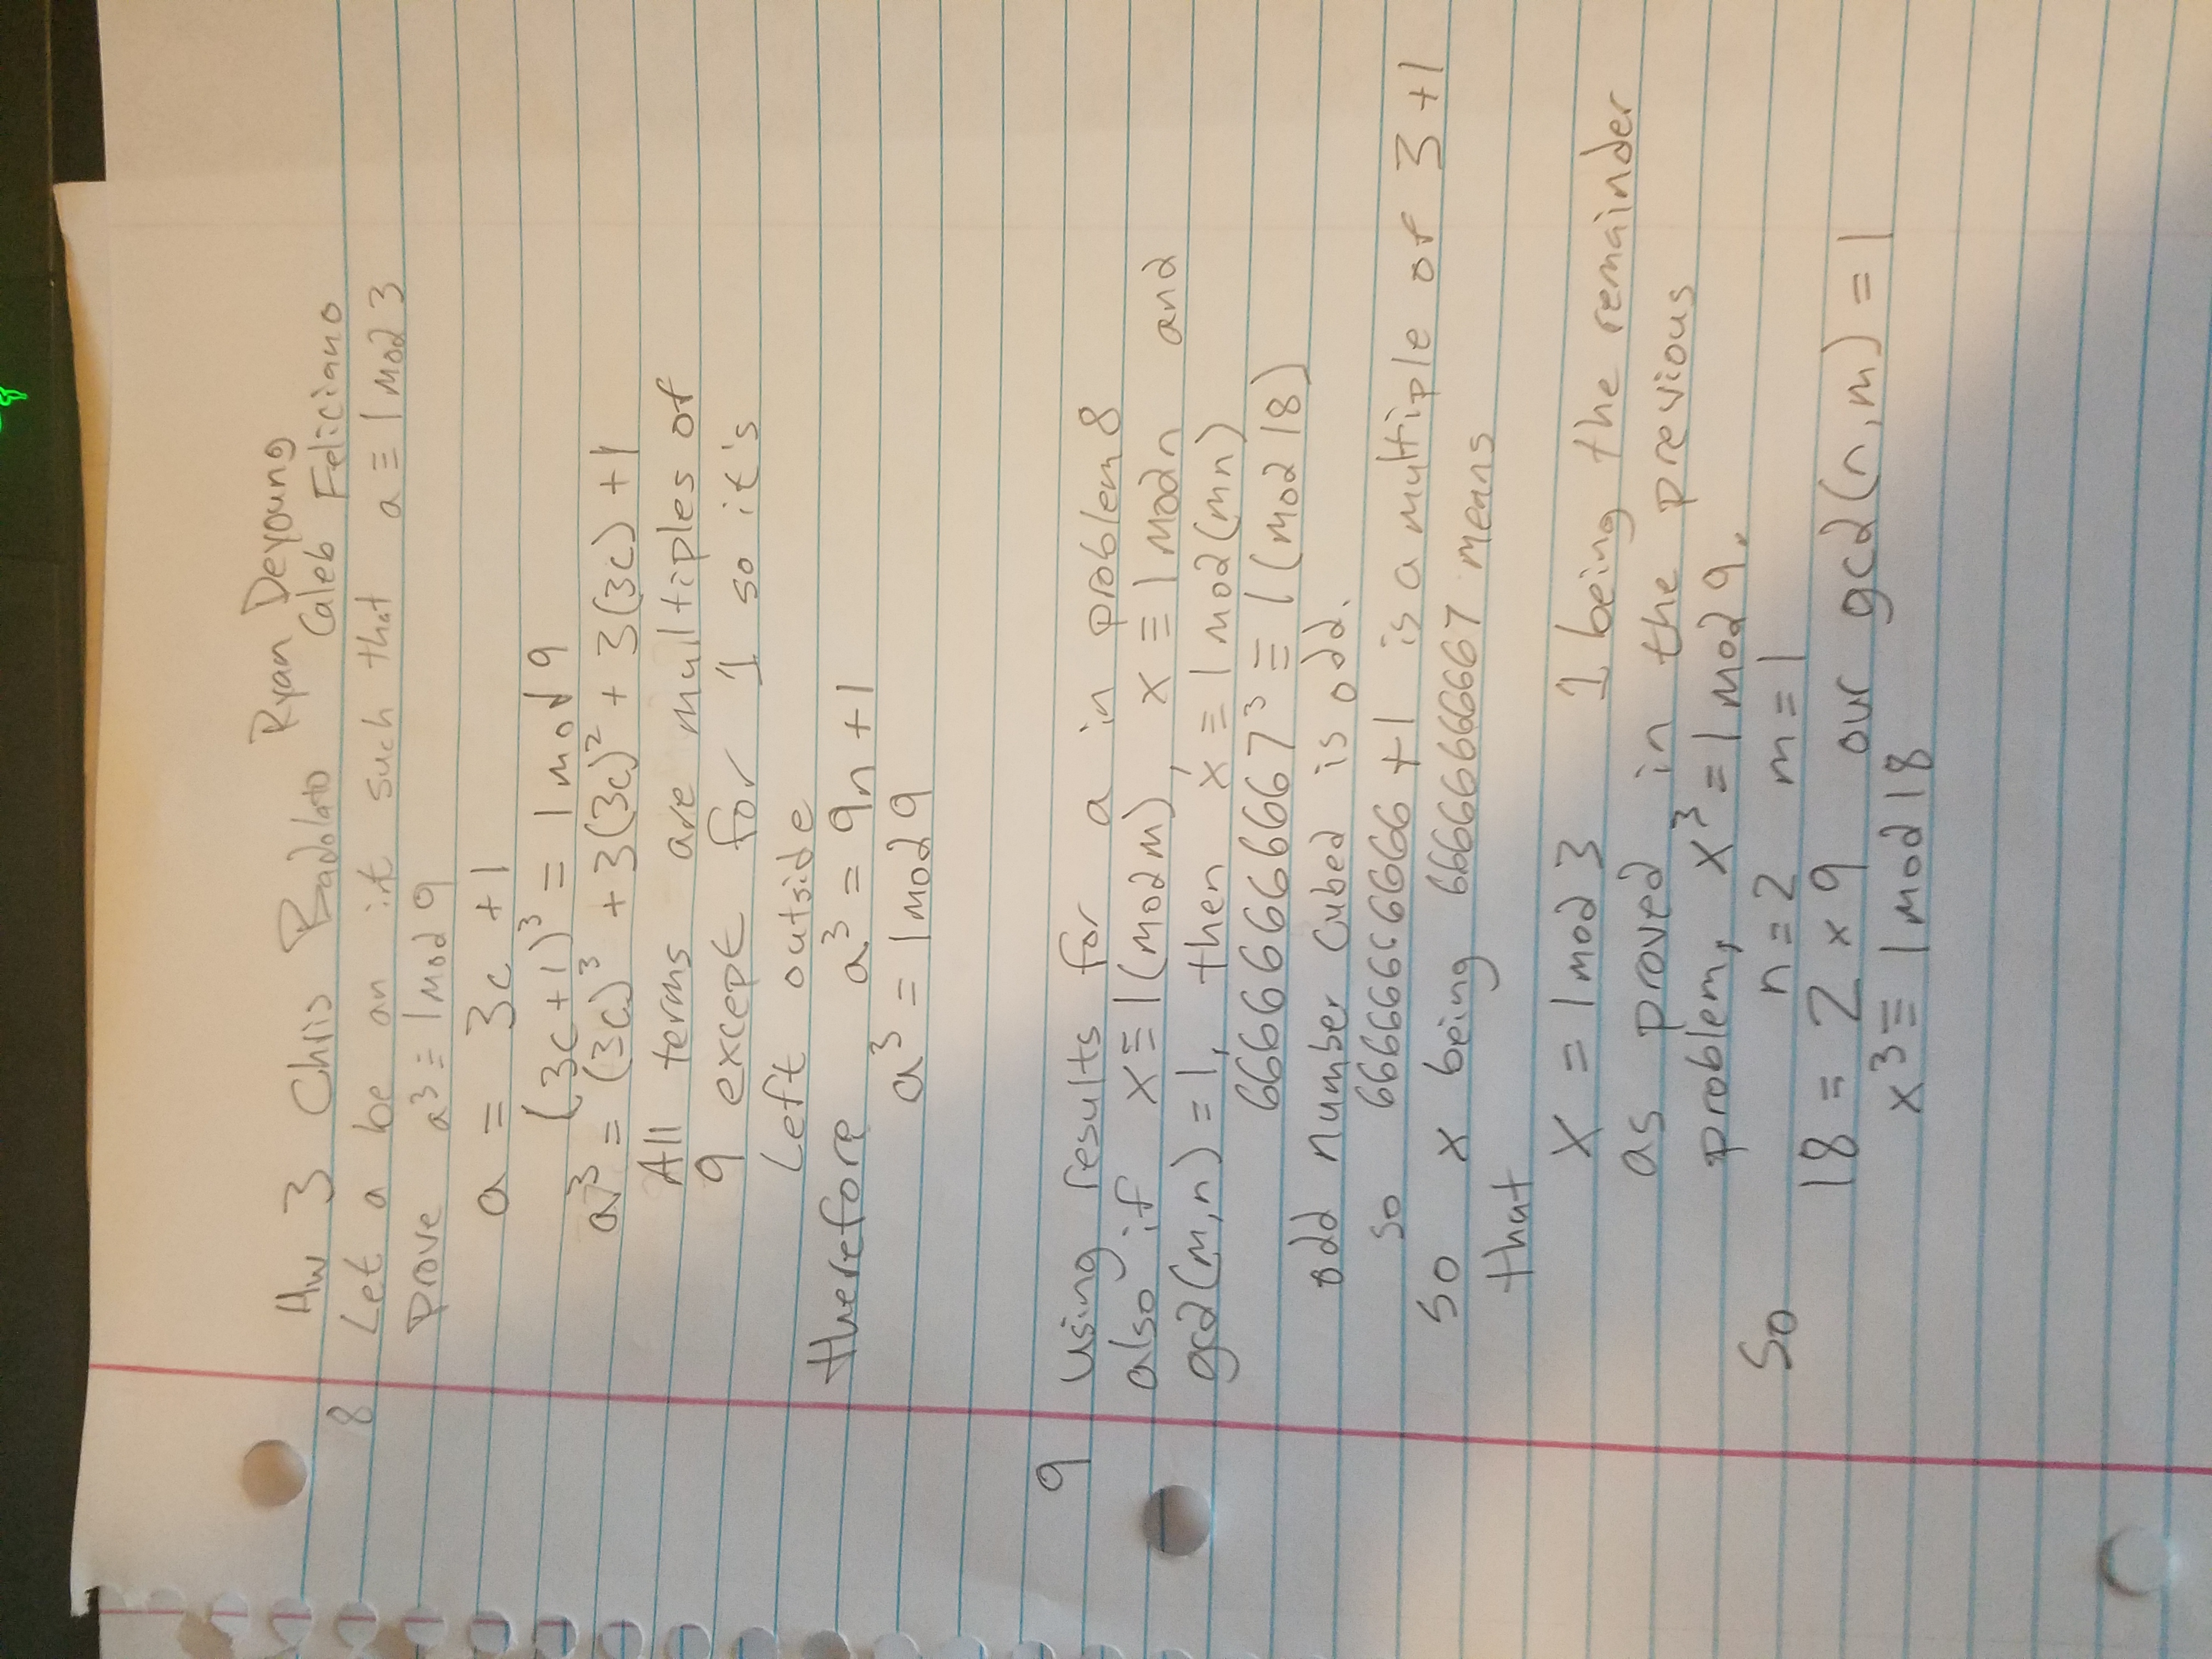 Ryan Deyoung
Hw 3 Chris Badolato Caleb Feliciano
8 Let a be an int such that a ≡ 1 mod 3
Prove a³ ≡ 1 mod 9
a = 3c + 1
(3c+1)³ = 1 mod 9
a³ = (3c)³ + 3(3c)² + 3(3c) + 1
All terms are multiples of
9 except for 1 so it's
Left outside
therefore a³ = 9n + 1
a³ = 1 mod 9
9 Using results for a in problem 8
also if x ≡ 1(mod m), x ≡ 1 mod n and
gcd(m,n) = 1, then x ≡ 1 mod(mn)
66666666667³ ≡ 1 (mod 18)
odd number cubed is odd.
so 66666666666 + 1 is a multiple of 3 + 1
So x being 66666666667 means
that
x = 1 mod 3 1 being the remainder
as proved in the previous
problem, x³ = 1 mod 9.
So n = 2 m = 1
18 = 2 × 9 our gcd(n,m) = 1
x³ ≡ 1 mod 18